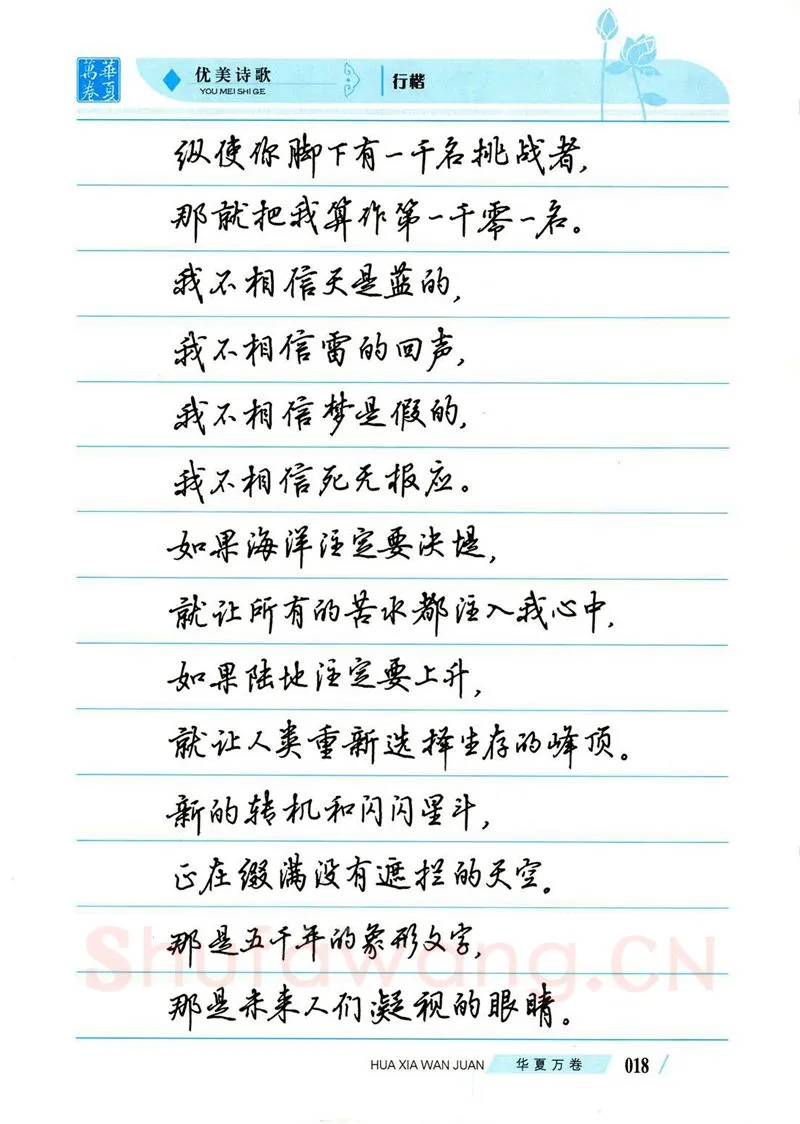 華夏萬卷
优美诗歌
YOU MEI SHI GE
行楷
纵使你脚下有一千名挑战者,
那就把我算作第一千零一名。
我不相信天是蓝的,
我不相信雷的回声,
我不相信梦是假的,
我不相信死无报应。
如果海洋注定要决堤,
就让所有的苦水都注入我心中,
如果陆地注定要上升,
就让人类重新选择生存的峰顶。
新的转机和闪闪星斗,
正在缀满没有遮拦的天空。
那是五千年的象形文字,
那是未来人们凝视的眼睛。
Shufawang.CN
HUA XIA WAN JUAN
华夏万卷
018